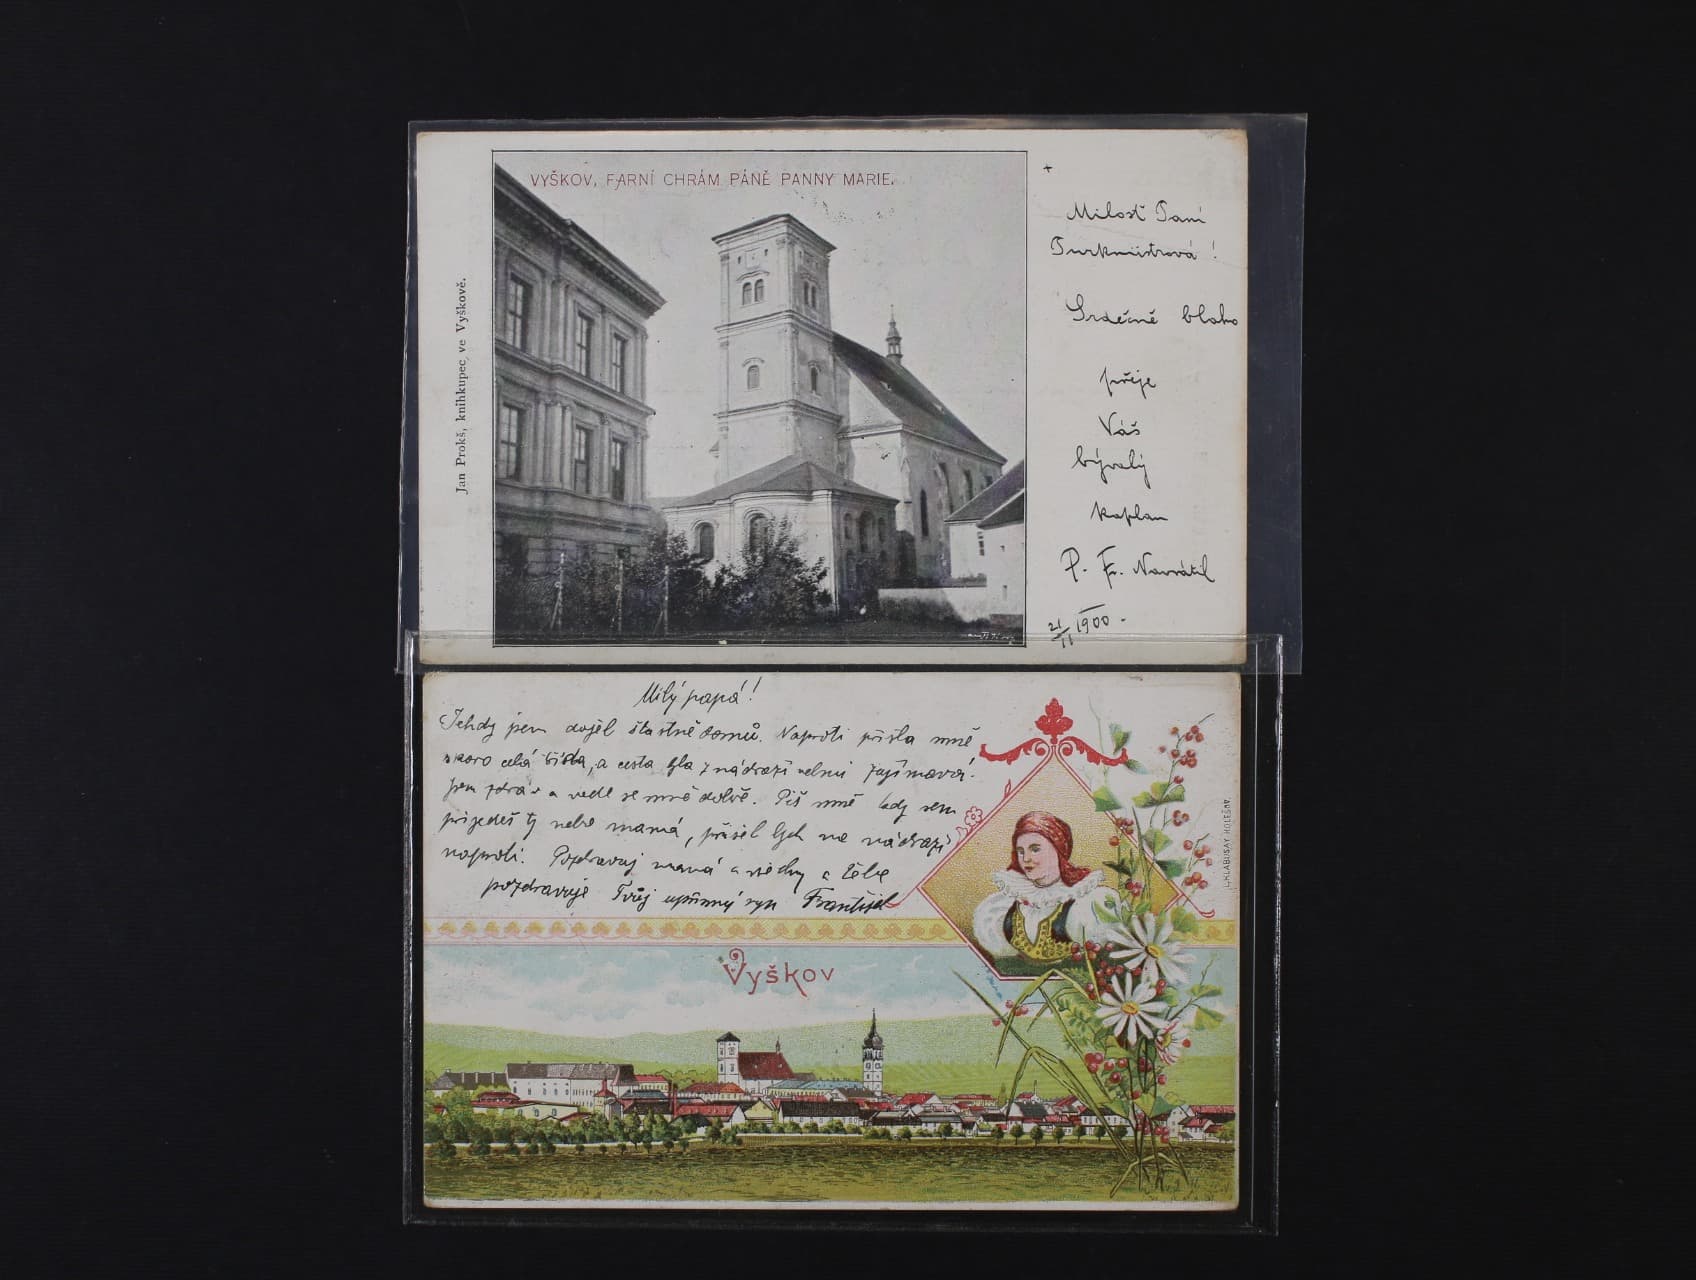 VYŠKOV, FARNÍ CHRÁM PÁNĚ PANNY MARIE.
Jan Prokš, knihkupec, ve Vyškově.
+
Milosť Paní
Purkmistrová!
Srdečné blaho
přeje
Váš
bývalý
kaplan
P. Fr. Navrátil
21/II 1900.
Milý papá!
Tehdy jsem dojel šťastně domů. Naproti přišla mně
skoro celá třída, a cesta byla z nádraží velmi zajímavá.
Jsem zdráv a vede se mně dobře. Piš mně kdy sem
přijedeš ty nebo mamá, přišel bych na nádraží
naproti. Pozdravuj mamá a všechny a Tebe
pozdravuje Tvůj upřímný syn František
Vyškov
L. KLABUSAY HOLEŠOV.